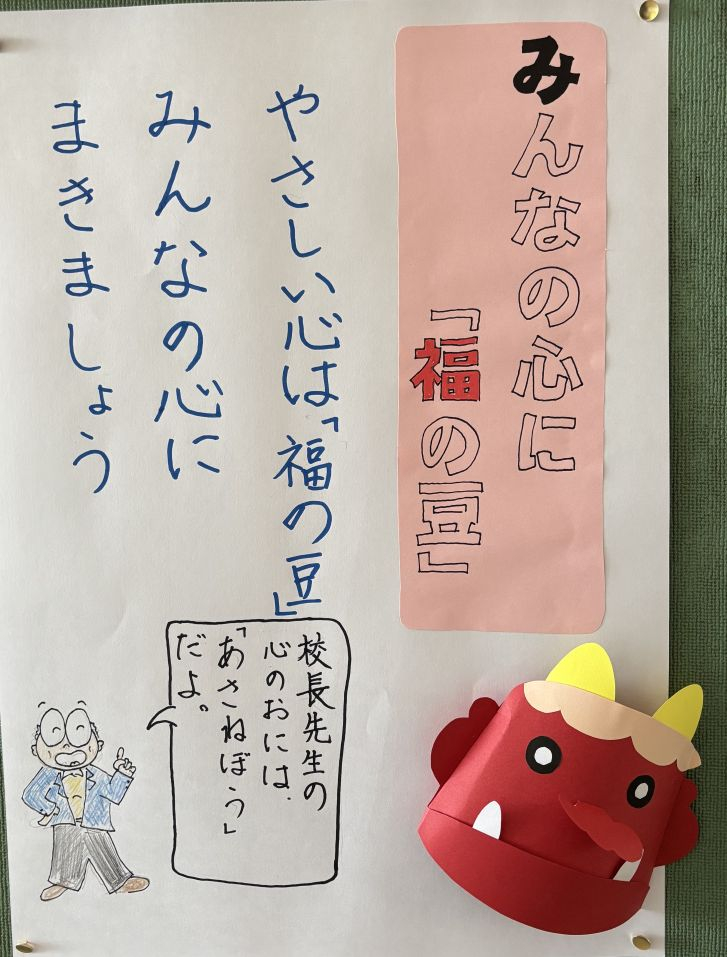 みんなの心に
「福の豆」
やさしい心は「福の豆」
みんなの心に
まきましょう
校長先生の
心のおには
「あさねぼう」
だよ。